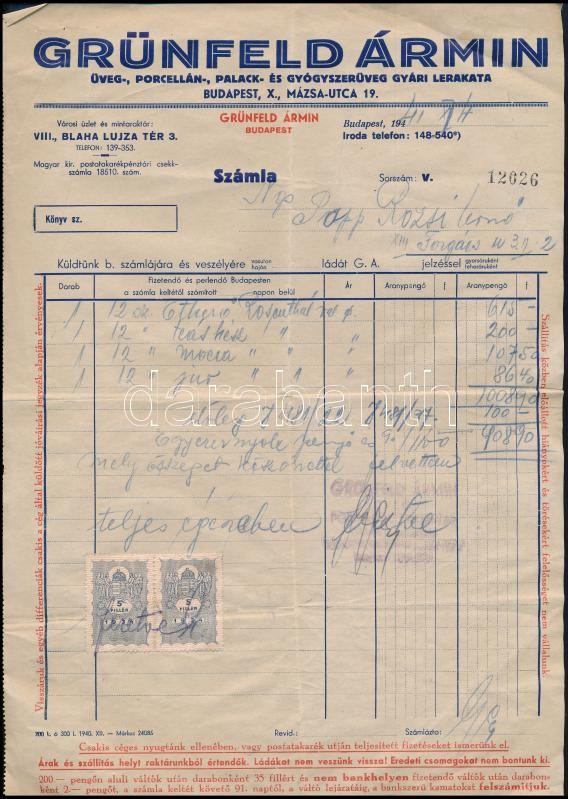 GRÜNFELD ÁRMIN
ÜVEG-, PORCELLÁN-, PALACK- ÉS GYÓGYSZERÜVEG GYÁRI LERAKATA
BUDAPEST, X., MÁZSA-UTCA 19.
Városi üzlet és mintaraktár:
VIII., BLAHA LUJZA TÉR 3.
TELEFON: 139-353.
Magyar kir. postatakarékpénztári csekk-
számla 18510. szám.
GRÜNFELD ÁRMIN
BUDAPEST
Budapest, 194
Iroda telefon: 148-540*)
Számla
Sorszám: V. 12026
Papp Rozsi
Könyv sz.
XIII Forgách u 31. 2
Küldtünk b. számlájára és veszélyére vasuton hajón ládát G. A. jelzéssel gyorsáruként teheráruként
Darab
Fizetendő és perlendő Budapesten
a számla keltétől számított napon belül
Ár Aranypengő f Aranypengő f
1 12 Rosenthal 615 -
1 12 " teás " " 200 -
1 12 " mocca " " 107 50
1 12 " " " 86 40
1008 90
100 -
908 90
pengő 90/100
mely összeget köszönettel felvettem
teljes egészében
GRÜNFELD ÁRMIN
5 5
FILLÉR FILLÉR
darabanth
Visszáruk és egyéb differenciák csakis a cég által küldött jóváírási jegyzék alapján érvényesek.
Szállítás közben előállott hiányokért és törésekért felelősséget nem vállalunk.
200 t. á 300 l. 1940. XII. — Márkus 24085
Revid.:
Számlázta:
Csakis céges nyugtánk ellenében, vagy postatakarék utján teljesített fizetéseket ismerünk el.
Árak és szállítás helyt raktárunkból értendők. Ládákat nem veszünk vissza! Eredeti csomagokat nem bontunk ki.
200 — pengőn aluli váltók után darabonként 35 fillért és nem bankhelyen fizetendő váltók után darabon-
ként 2.— pengőt, a számla keltét követő 91. naptól, a váltó lejáratáig, a bankszerű kamatokat felszámítjuk.